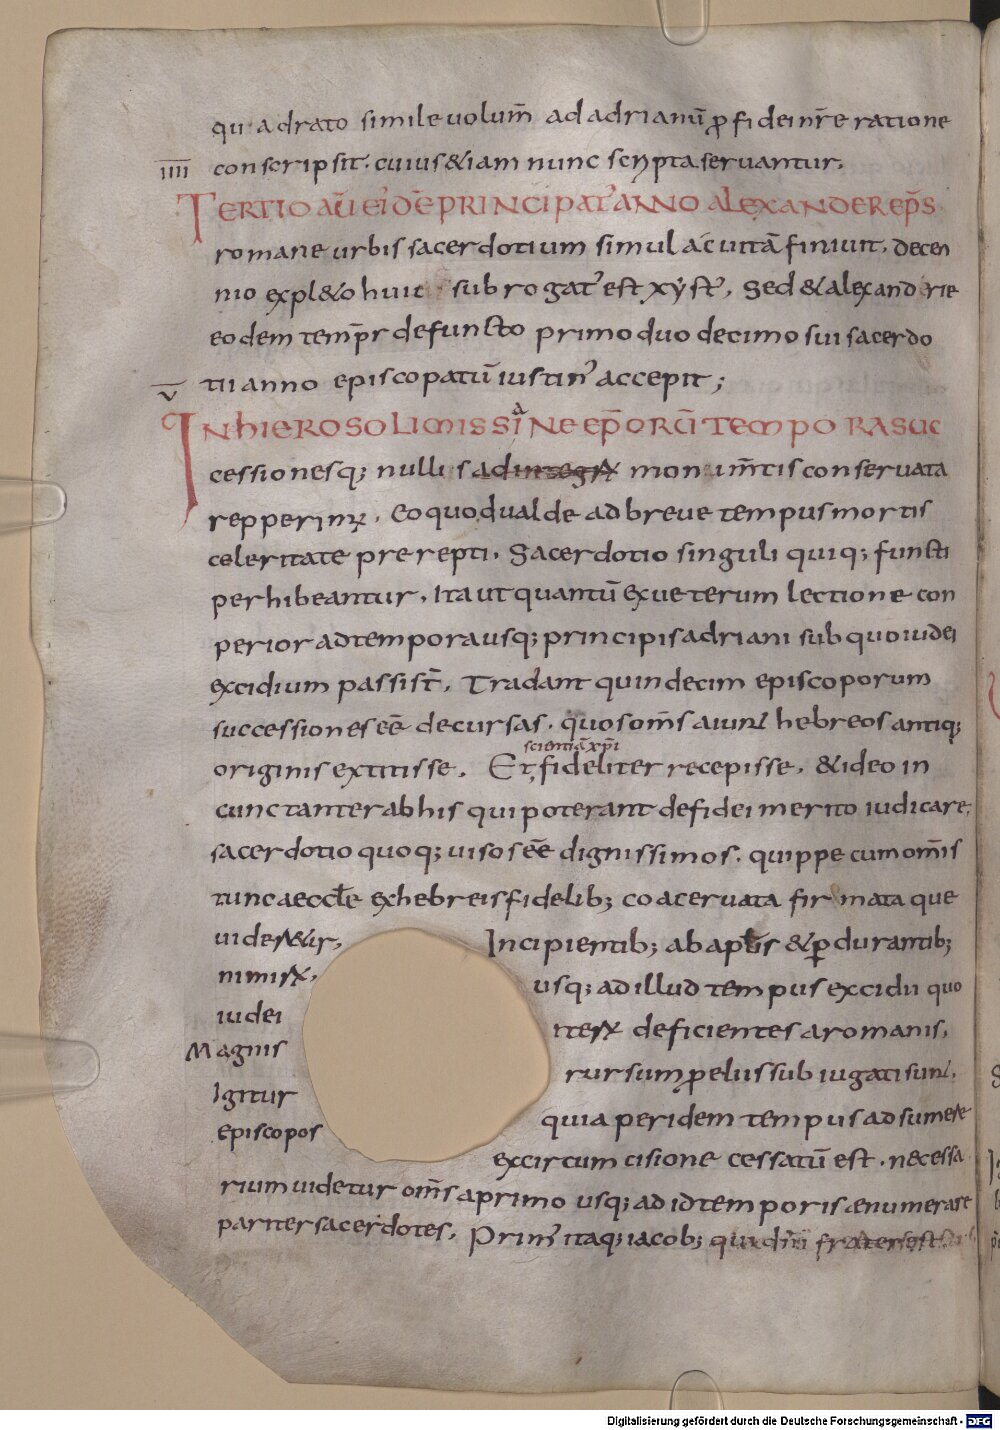 quadrato simile uolum̄ ad adrianū ꝓ fidei nr̄e ratione
IIII conscripsit. cuius &iam nunc scripta seruantur.
TERTIO aū eiꝰdē PRINCIPATꝰ ANNO ALEXANDER EP̄S
romane urbis sacerdotium simul ac uitā finiuit. decen
nio expl&o huic subrogatꝰ est xystꝰ. Sed & alexandrie
eodem temp̄r defuncto primo duodecimo sui sacerdo
V tii anno episcopatū iustinꝰ accepit;
IN hIEROSOLIMIS SANE EP̄ORŪ TEMPORA SUC
cessionesq; nullis ad integrū monum̄tis conseruata
repperimꝰ. Eo quod ualde ad breue tempus mortis
celeritate prerepti. Sacerdotio singuli quiq; functi
perhibeantur. Ita ut quantū ex ueterum lectione con
perior ad tempora usq; principis adriani sub quo iudei
excidium passi st̄. Tradant quindecim episcoporum
successiones eē decursas. quos om̄s aiunt hebreos antiq;
scientiā xp̄i
originis extitisse. Et fideliter recepisse. & ideo in
cunctanter ab his qui poterant de fidei merito iudicare;
sacerdotio quoq; uisos eē dignissimos. quippe cum om̄is
tunc aeccl̄e ex hebreis fidelib; coaceruata firmataque
uider&ur, Incipientib; ab apl̄is & ꝑdurantib;
nimirū, usq; ad illud tempus excidii quo
iudei iterū deficientes a romanis,
Magnis rursum ꝓeliis subiugati sunt.
Igitur quia per idem tempus adsumere
episcopos ex circumcisione cessatū est. necessa
rium uidetur om̄s a primo usq; ad id temporis ænumerare
pariter sacerdotes. Primꝰ itaq; iacob; qui dn̄i frater est
Digitalisierung gefördert durch die Deutsche Forschungsgemeinschaft - DFG